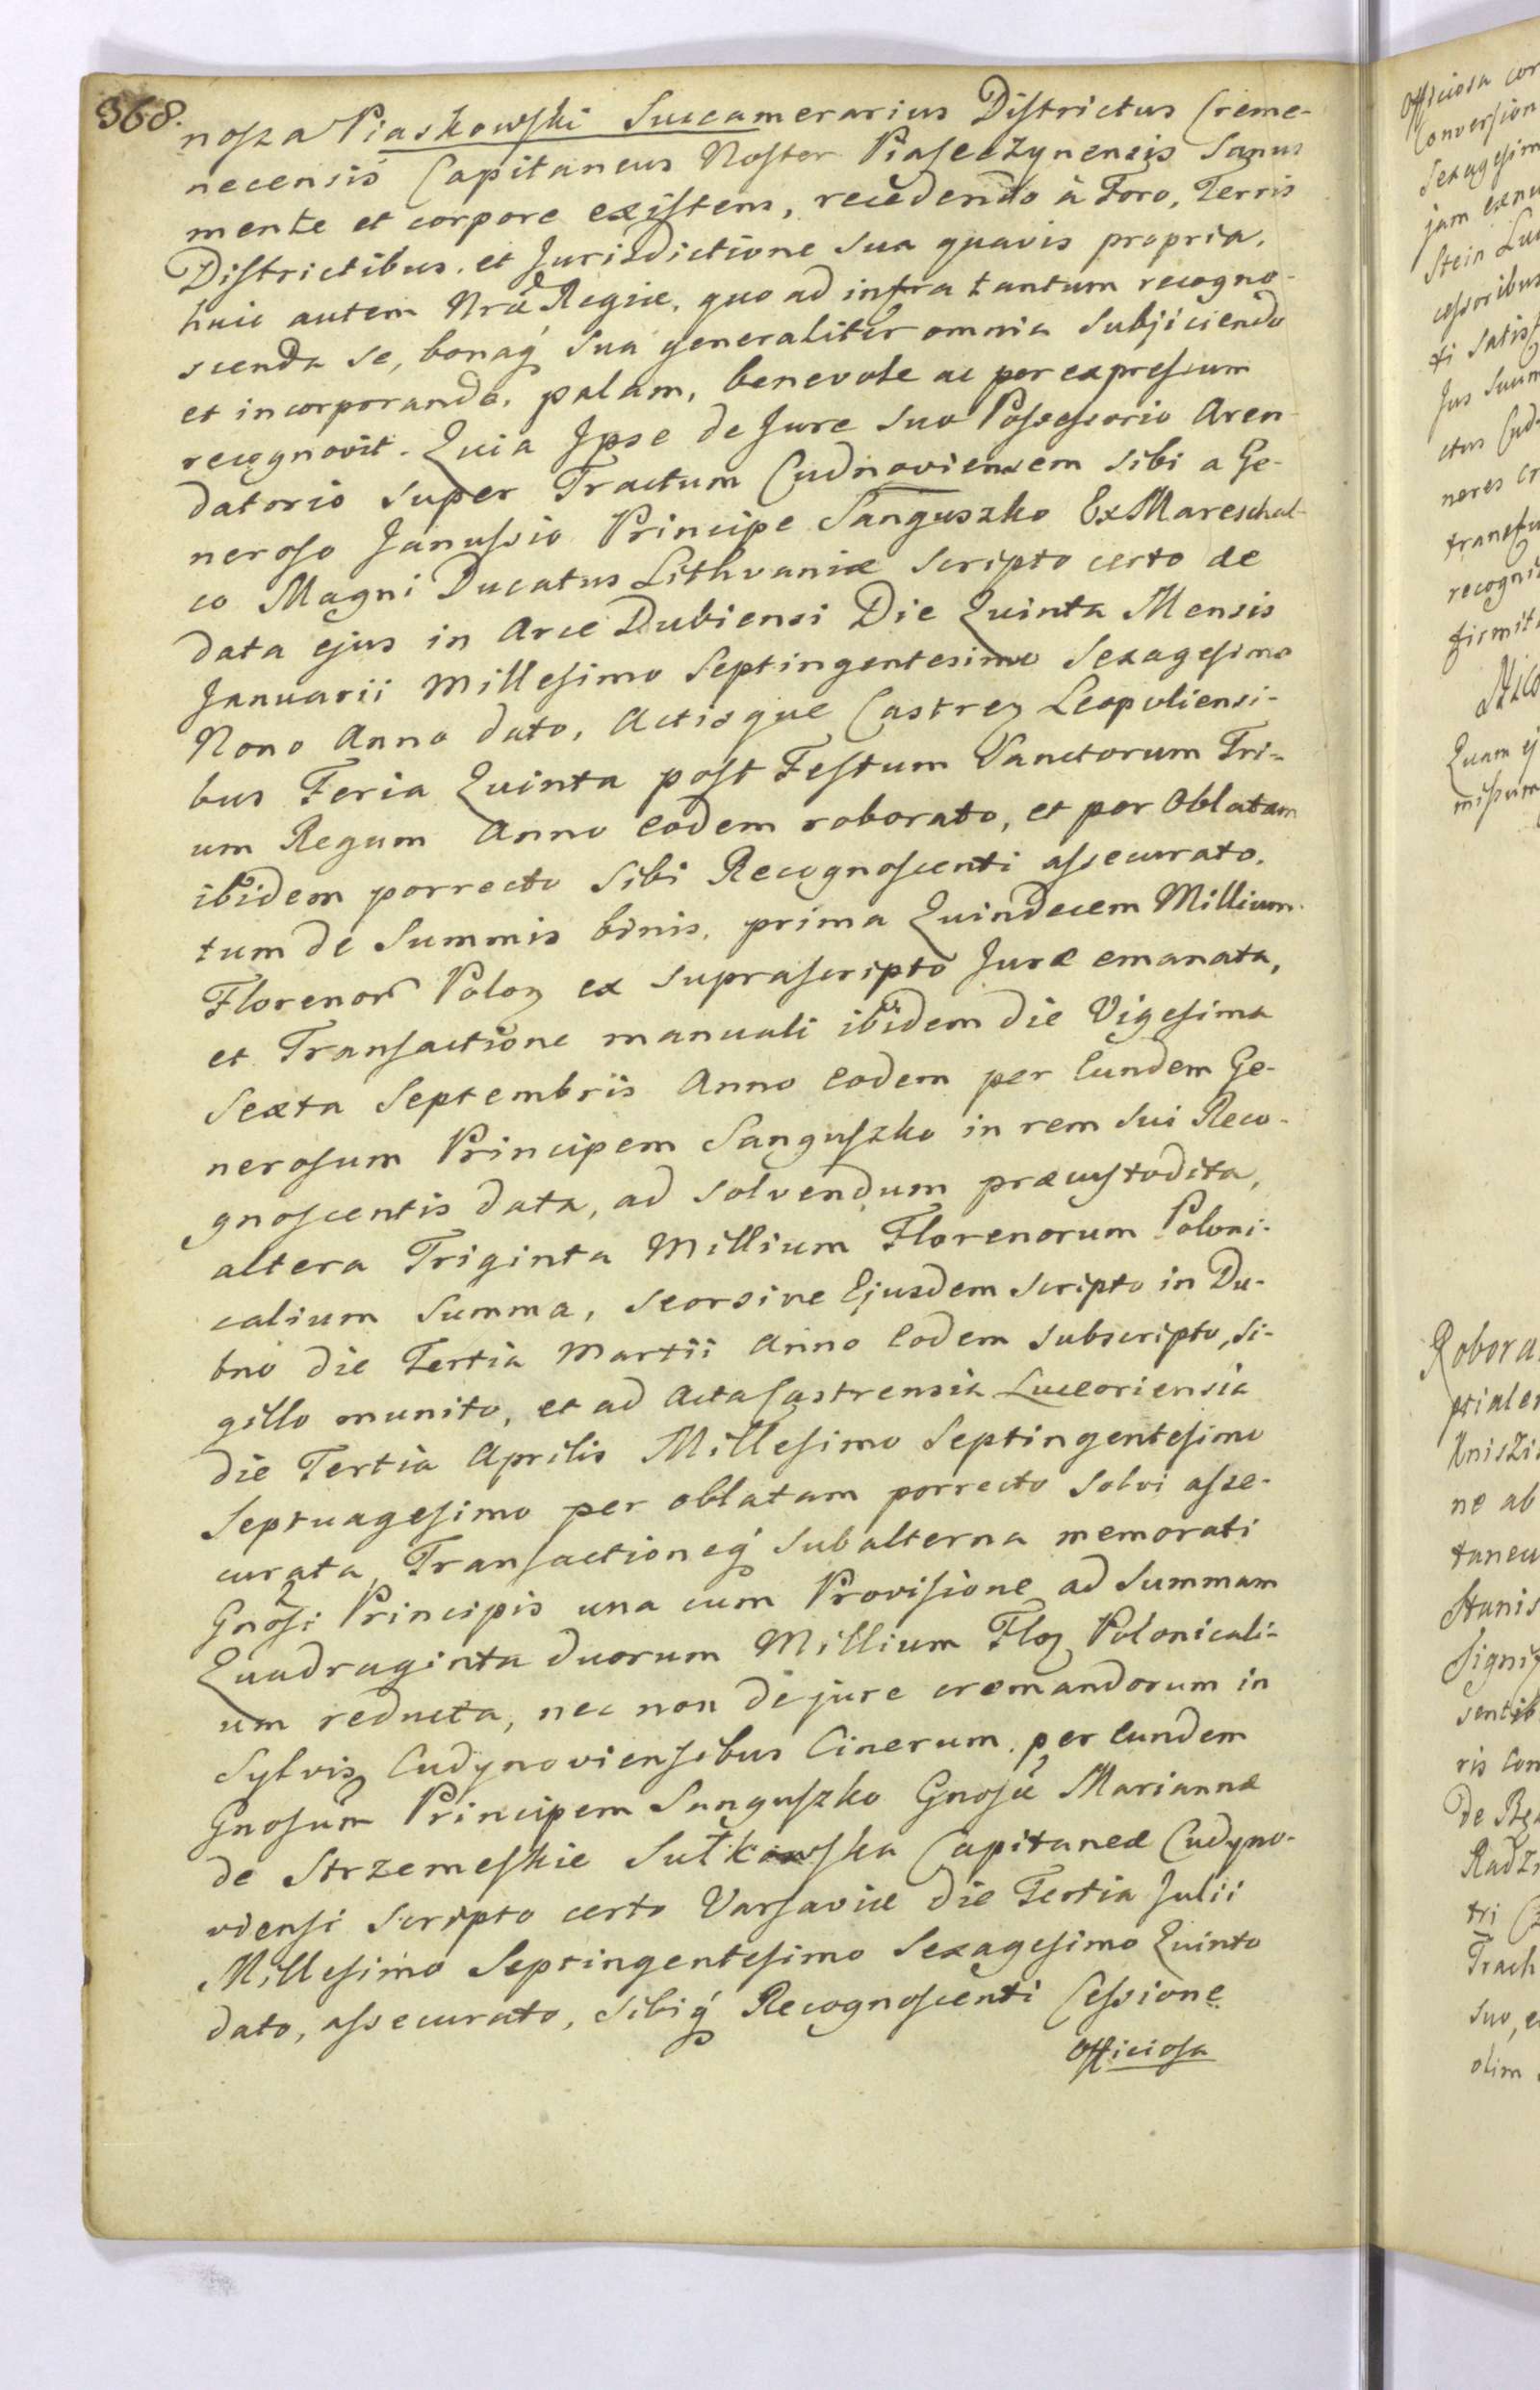 368.
nosza Piaskowski Succamerarius Districtus Creme-
necensis Capitaneus Noster Piaseczynensis Sanus
mente et corpore existens, recedendo à Foro, Terris
Districtibus, et Jurisdictione sua quavis propria,
huic autem Nrae Regiae, quo ad infra tantum recogno-
scenda se, bonaq́ sua generaliter omnia Subjiciendo
et incorporando, palam, benevole ac per expressum
recognovit. Quia Ipse de Jure suo Possessorio Aren-
datorio super Tractum Cudnoviensem sibi a Ge-
neroso Janussio Principe Sanguszko Ex Mareschal-
co Magni Ducatus Lithvaniae scripto certo de
data ejus in Arce Dubiensi Die Quinta Mensis
Januarii Millesimo Septingentesimo Sexagesimo
Nono Anno dato, Actisque Castreņ Leopoliensi-
bus Feria Quinta post Festum Sanctorum Tri-
um Regum Anno eodem roborato, et per Oblatam
ibidem porrecto Sibi Recognoscenti assecurato.
tum de Summis binis, prima Quindecem Millium
Florenor̃ Poloņ ex suprascripto Jure emanata,
et Transactione manuali ibidem die Vigesima
Sexta Septembris Anno eodem per Eundem Ge-
nerosum Principem Sanguszko in rem sui Reco-
gnoscentis data, ad solvendum praecustodita,
altera Triginta Millium Florenorum Poloni-
calium Summa, seorsive Ejusdem scripto in Du-
bno die Tertia Martii Anno Eodem subscripto, si-
gillo munito, et ad Acta Castrensia Luceoriensia
die Tertia Aprilis Millesimo Septingentesimo
Septuagesimo per oblatam porrecto solvi asse-
curata, Transactioneq́ subalterna memorati
Gnosi Principis una cum Provisione ad Summam
Quadraginta duorum Millium Floņ Polonicali-
um reducta, nec non de jure cremandorum in
Sylvis Cudynoviensibus Cinerum, per eundem
Gnosum Principem Sanguszko Gnosae Mariannae
de Strzemeskie Sułkowska Capitaneae Cudyno-
viensi scripto certo Varsaviae die Tertia Julii
Millesimo Septingentesimo Sexagesimo Quinto
dato, assecurato, sibiq́ Recognoscenti Cessione
Officiosa
Officiosa
Conversion
Sexagesim
jam
Stein
cessoribus
ti satis
Jus suum
ctus Cud
neres
recogni
Quam ej
Robora
ne ab
taneu
ris con
tri
Trach
suo, e
olim